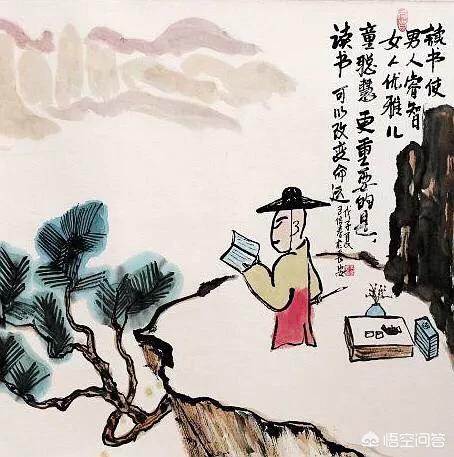 读书使
男人睿智
女人优雅儿
童聪慧更重要的是、
读书可以改变命运
悟空问答